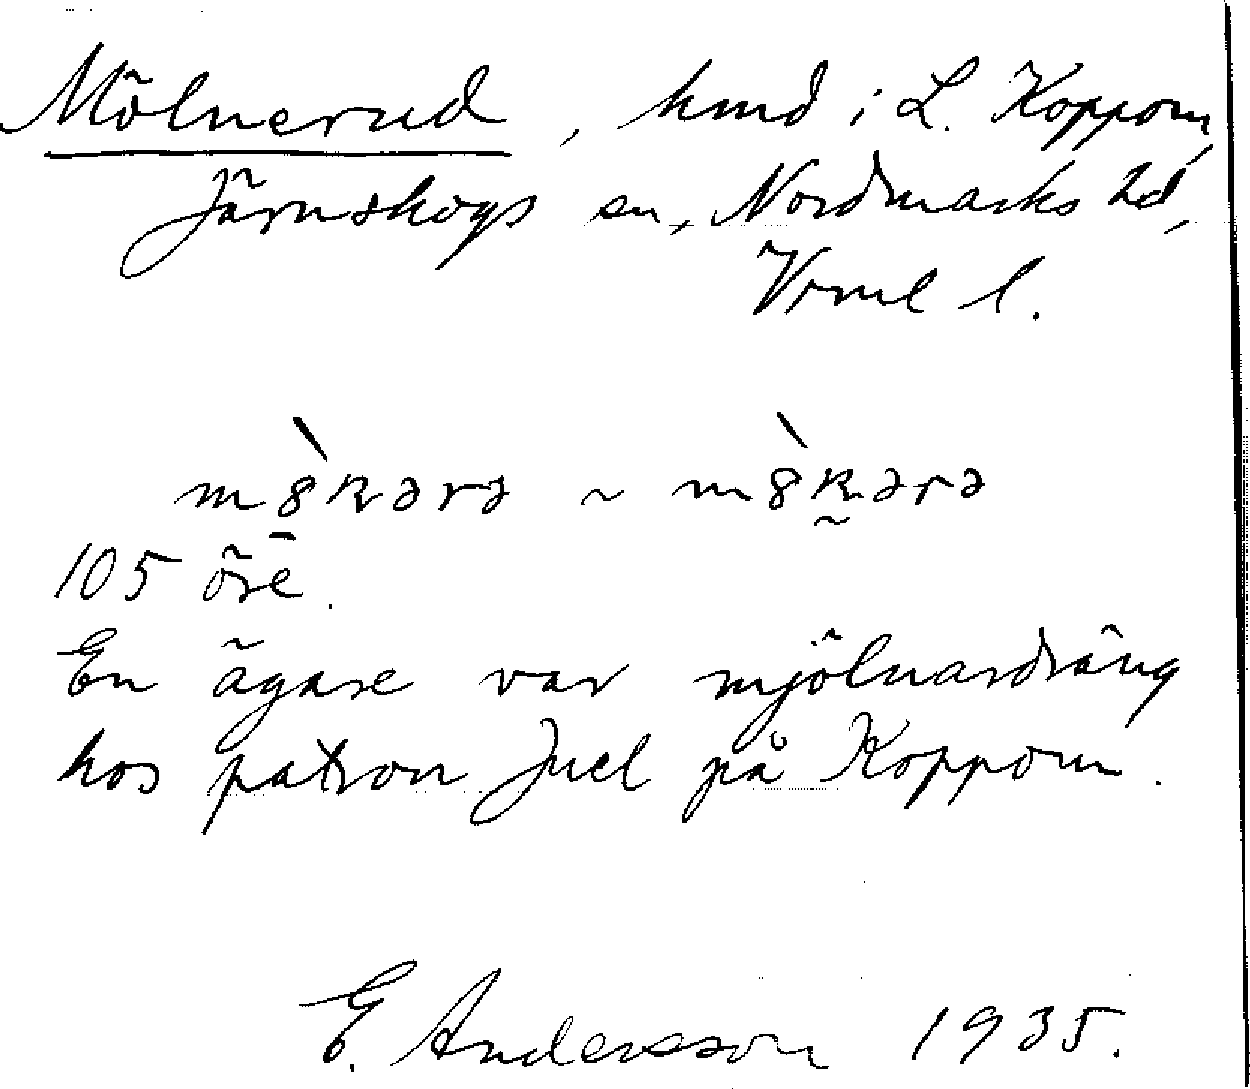 Mölnerud, hmd i L. Koppom,
Järnskogs sn, Nordmarks hd,
Vrml l.
105 öre.
En ägare var mjölnardräng
hos patron Juel på Koppom.
E. Andersson 1935.